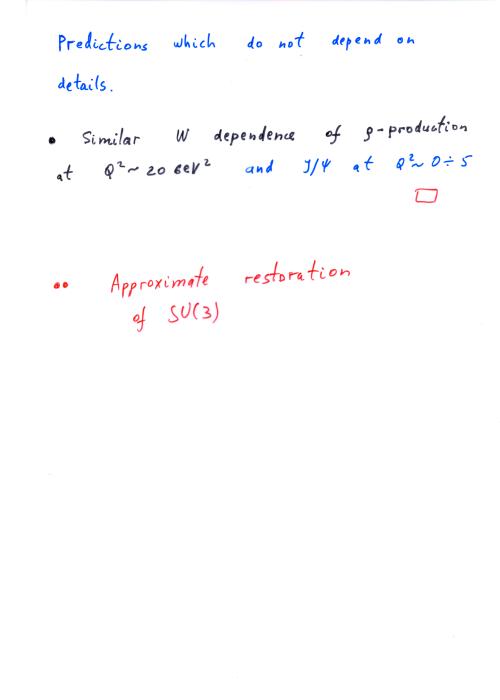 Predictions which do not depend on
details.
• Similar W dependence of ρ-production
at Q²~ 20 GeV² and J/Ψ at Q²~ 0÷5
•• Approximate restoration
of SU(3)